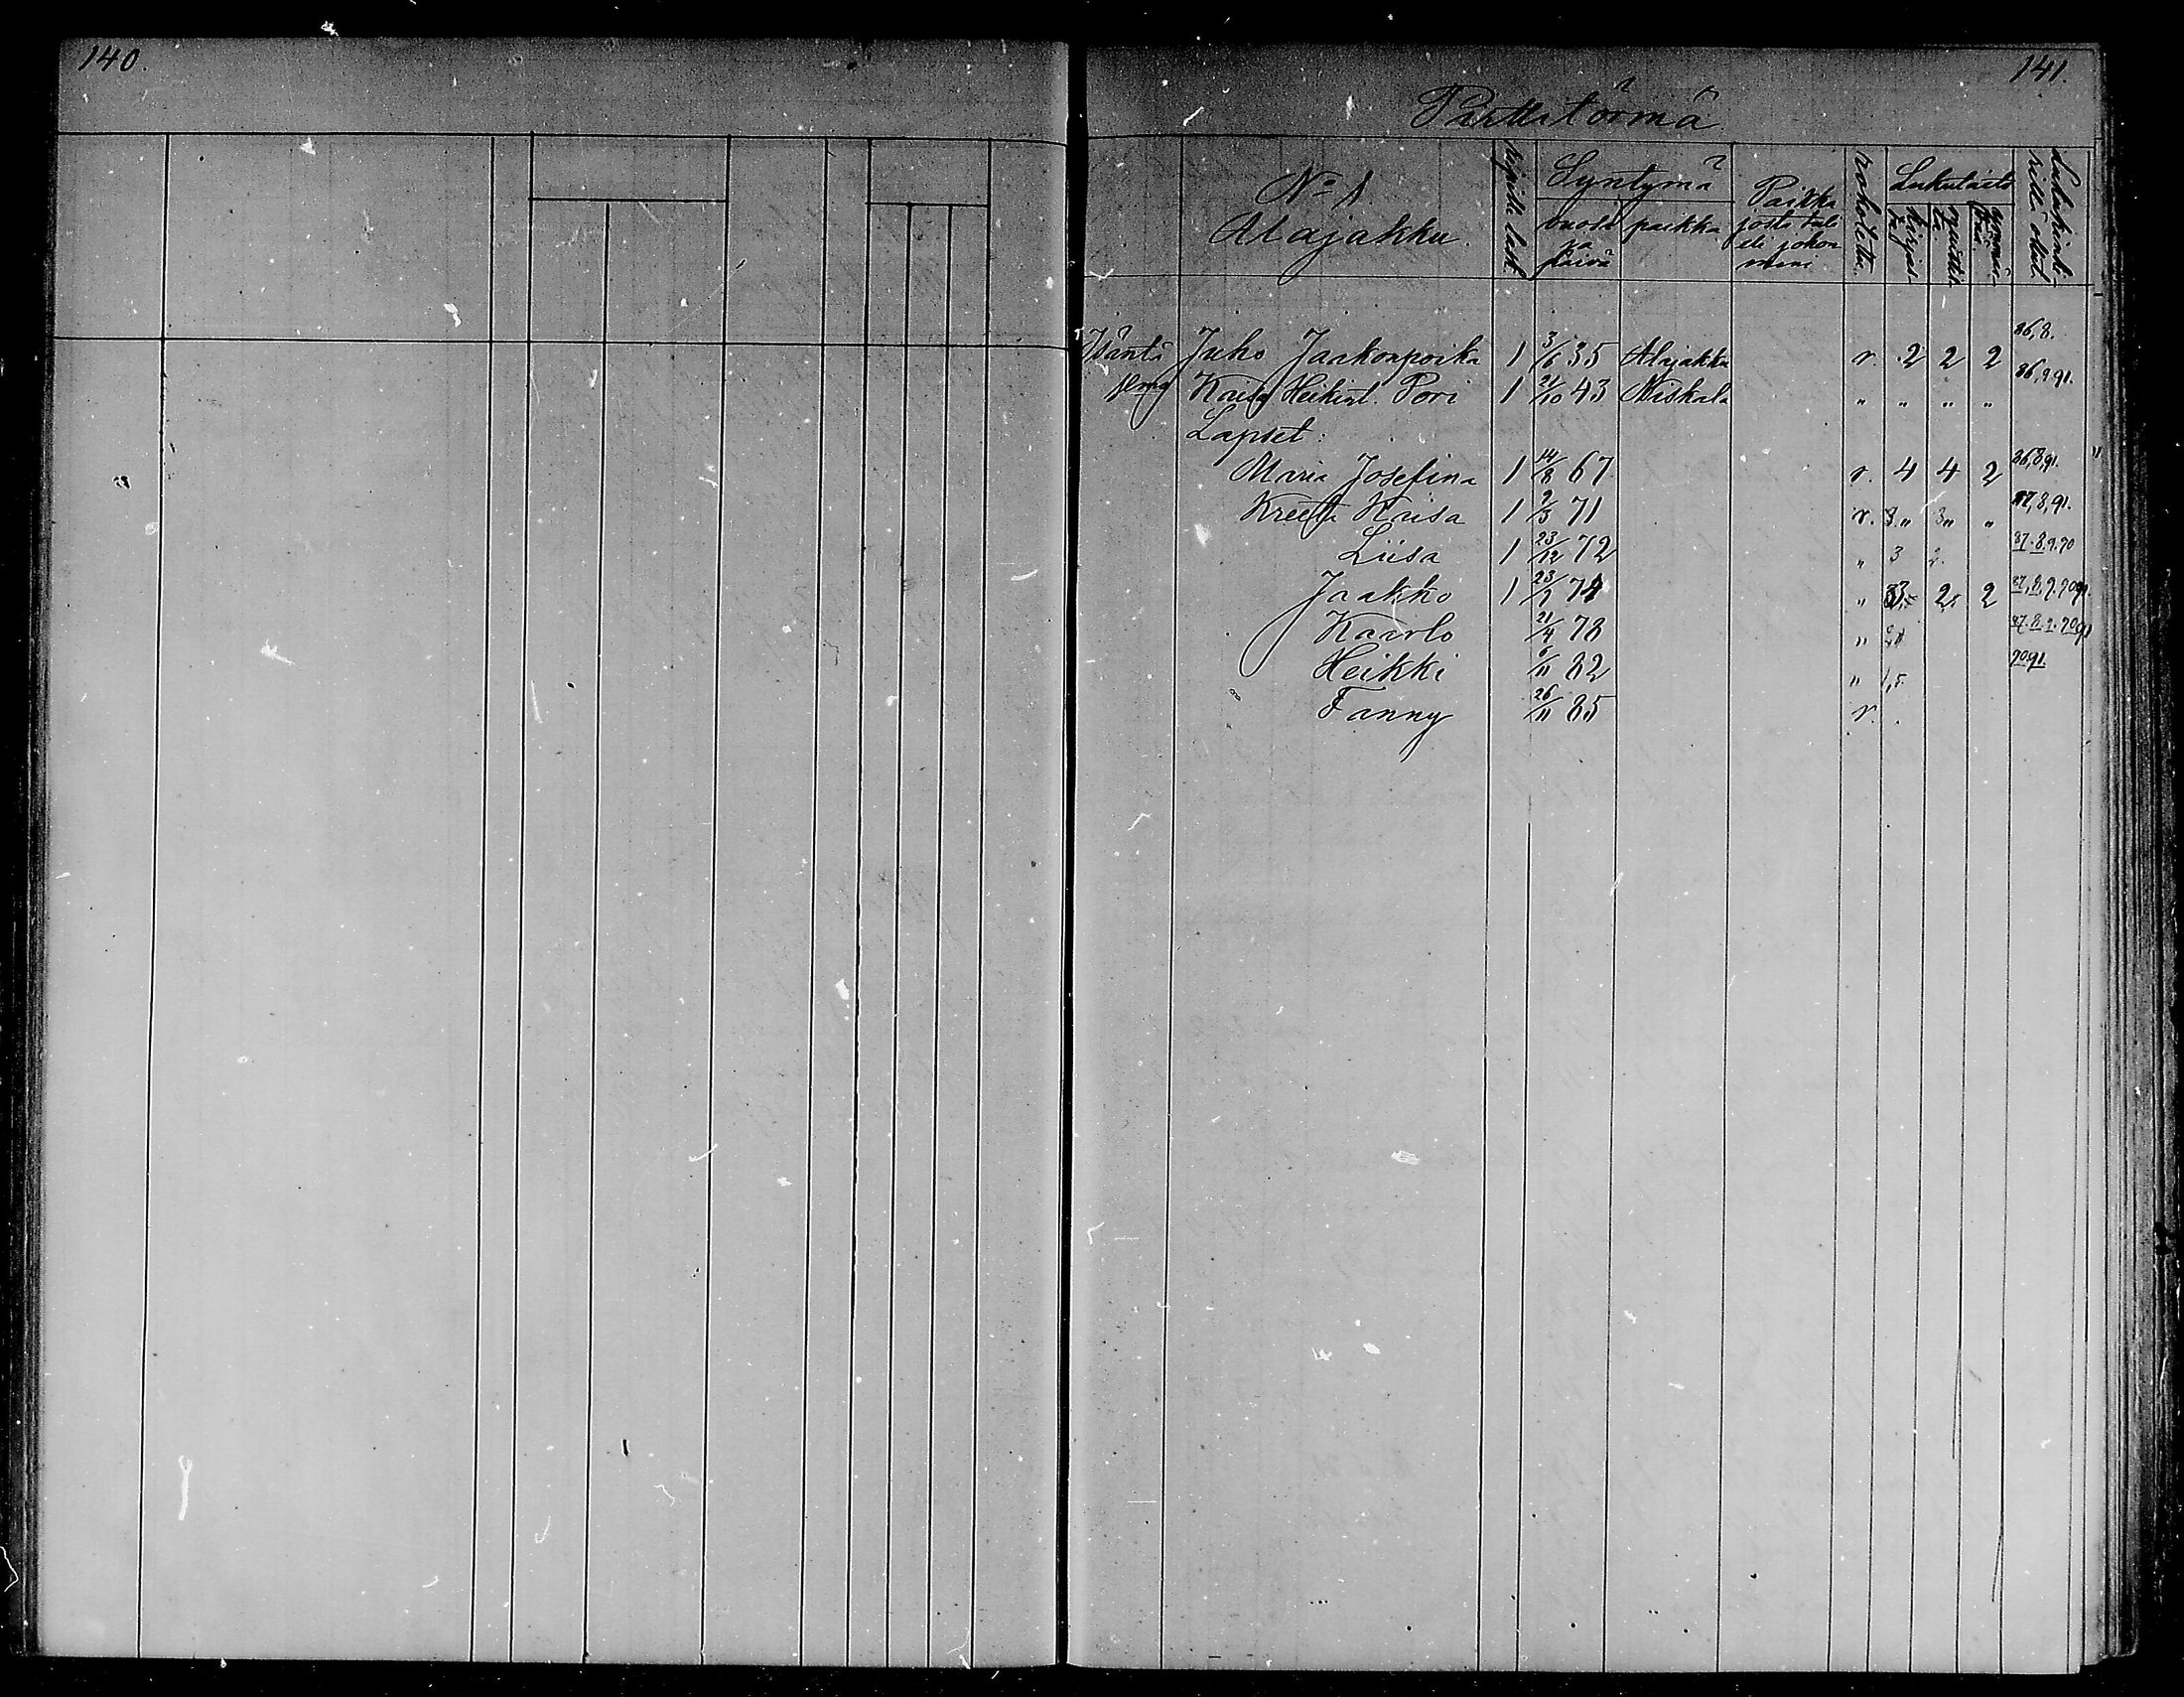 140.
141.
Parttitörmä
No 1
Alajakku.
Syntymä
vuosi ja päivä
paikka
Paikka josta tuli eli johon meni
rokotettu.
Lukutaito
kirjasta
Lukukinkerillä ollut.
86,8.
Isäntä Juho Jaakonpoika 1 3/6 35 Alajakku r. 2 2 2
86,9,91.
Kaisa Heikint. Pori 1 21/10 43 Niskala " " " "
Lapset:
Maria Josefina 1 14/8 67 r. 4 4 2 86,8,91.
Kreeta Kaisa 1 2/3 71 r. 3" 3" " 87,8,91.
Liisa 1 23/12 72 " 3 87.8.9.90
Jaakko 1 74 " 2 87,8,9,90,91.
Kaarlo 21/4 78 " 87.8.9.90,91
Heikki 6/11 82 " 90,91.
Fanny 26/11 85 r.